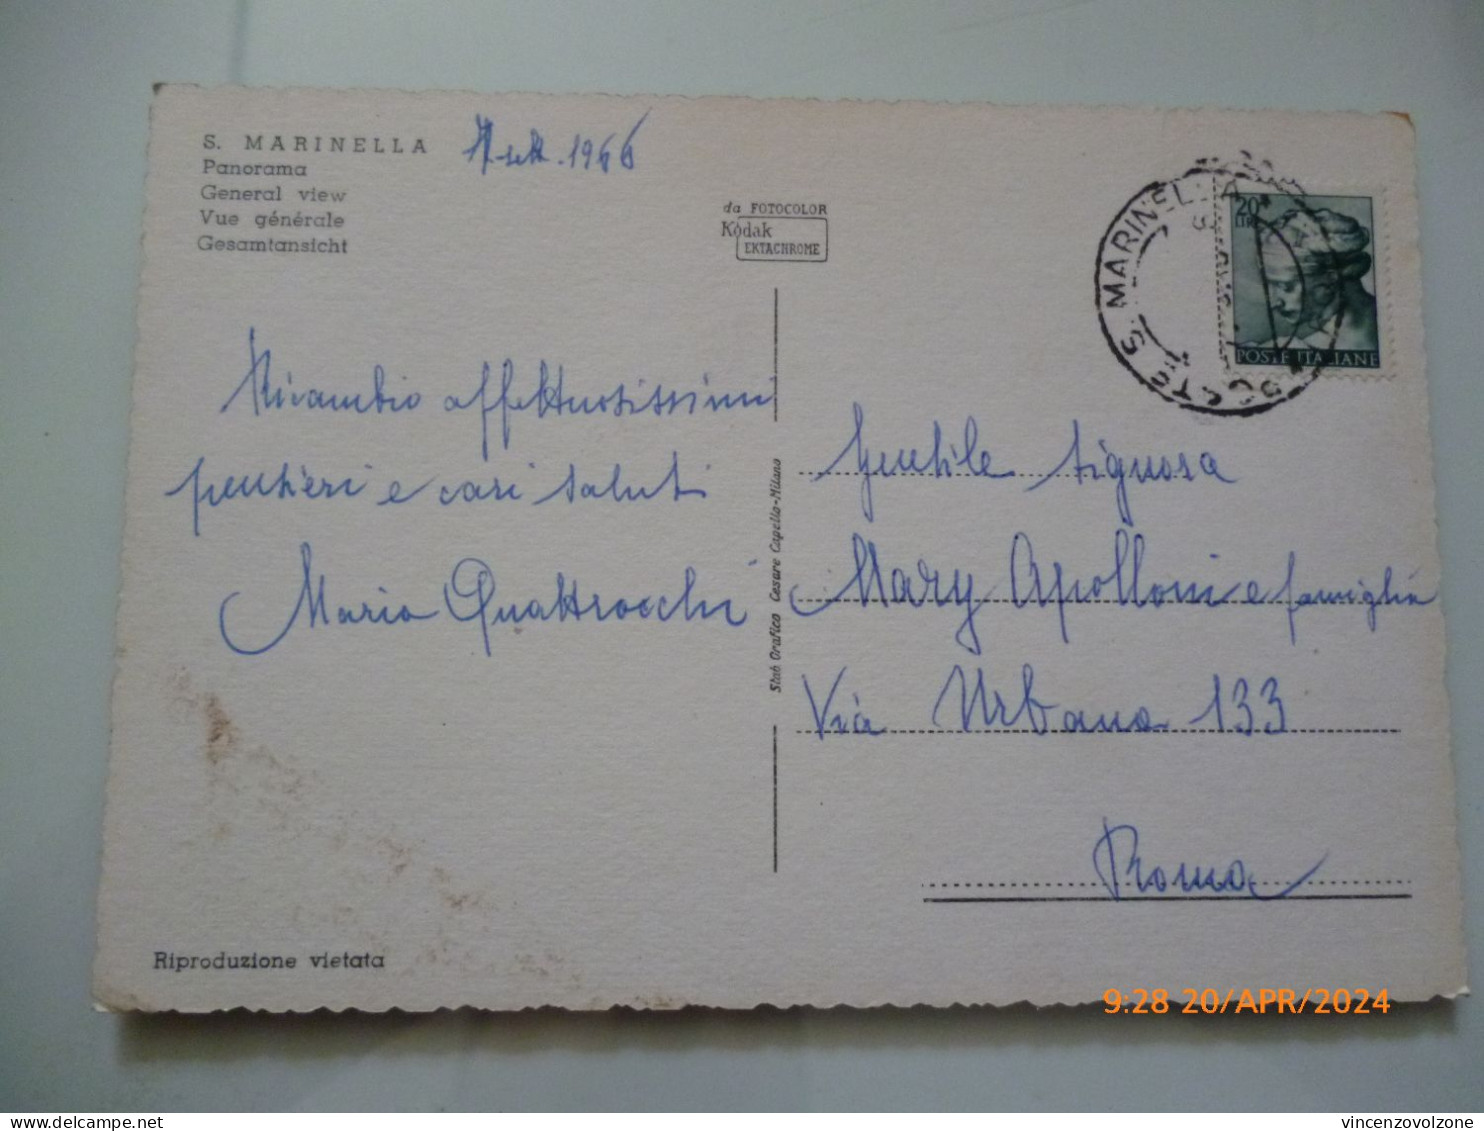 S. MARINELLA
Panorama
General view
Vue générale
Gesamtansicht
sett. 1966
da FOTOCOLOR
Kodak
EKTACHROME
POSTE S. MARINELLA
20
LIRE
POSTE ITALIANE
Ricambio affettuosissimi
pensieri e cari saluti
Mario Quattrocchi
Stab Grafico Cesare Capello-Milano
Gentile Signora
Mary Apolloni e famiglia
Via Urbana 133
Roma
Riproduzione vietata
9:28 20/APR/2024
vincenzovolzone